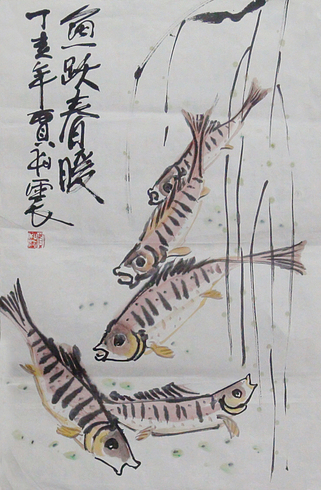 鱼跃春暖
丁亥年贾和震